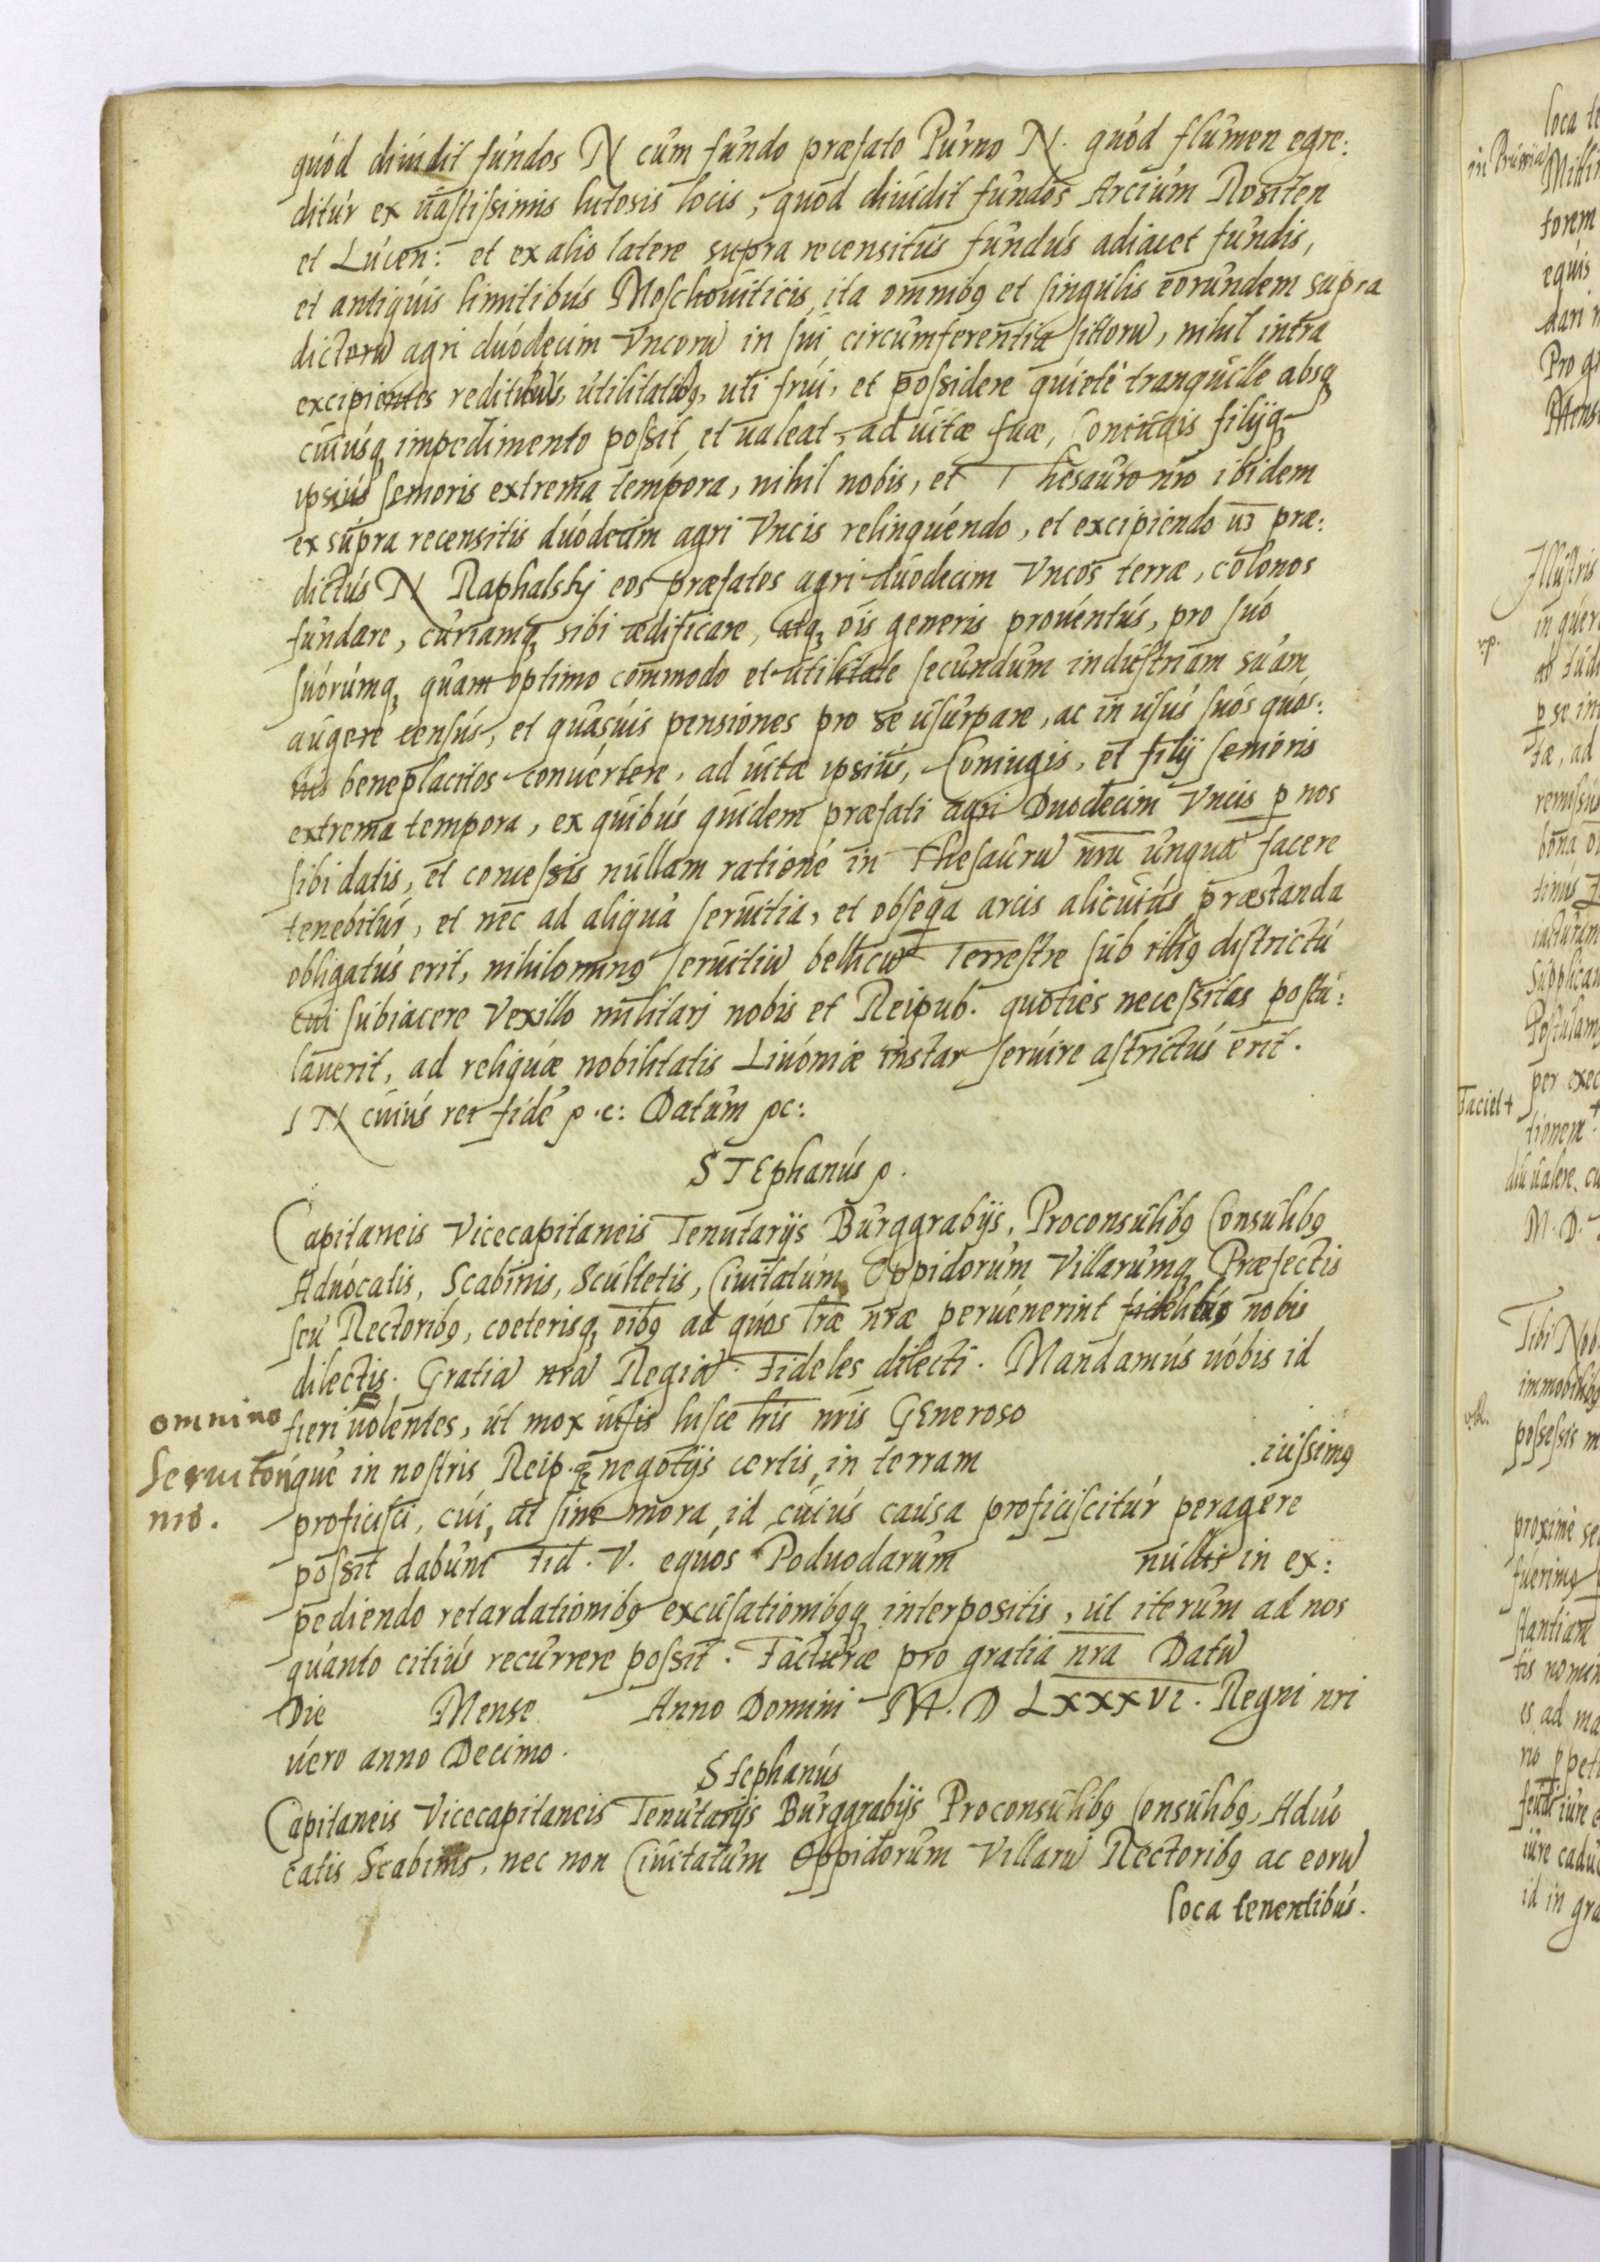 quód diuidit fundos N cum fundo præfato Purno N. quód flumen egre:
ditur ex uastissimis lutosis locis, quod diuidit fundos Arcium Rositen
et Lucen: et ex alio latere supra recensitus fundus adiacet fundis,
et antiquis limitibus Moschouiticis, ita omnibꝫ et singulis eorundem supra
dictorū agri duodecim Vncorū in sui circumferentia sitorū, nihil intra
excipientes reditibus, utilitatibꝫ, uti frui, et possidere quietè tranquille absqꝫ
cuiusqꝫ impedimento possit, et ualeat, ad uitæ suæ, Coniugis filijqꝫ
ipsius semoris extrema tempora, nihil nobis, et Thesauro nrō ibidem
ex supra recensitis duodecim agri Vncis relinquendo, et excipiendo præ:
dictus N Raphalskj eos præfatos agri duodecim Vncos terræ, colonos
fundare, curiamqꝫ sibi ædificare, atqꝫ oīs generis prouentus, pro suo
suorumqꝫ quam optimo commodo et utilitate secundum industriam suam
augere census, et quasuis pensiones pro se usurpare, ac in usus suos quos:
uis beneplacitos conuertere, ad uitæ ipsius, Coniugis, et filij semoris
extrema tempora, ex quibus quidem præfati agri Duodecim Vncis ꝑ nos
sibi datis, et concessis nullam rationē in Thesaurū nrū unquā facere
tenebitur, et nec ad aliqua seruitia, et obseqa arcis alicuius præstanda
obligatus erit, nihilominꝰ seruitiū bellicū Terrestre sub illiꝰ districtu
cui subiacere Vexillo militarj nobis et Reipub. quoties necessitas postu:
lauerit, ad reliquæ nobilitatis Liuoniæ instar seruire astrictus erit.
IN cuius rei fidē p.c: Datum pc:
STEphanus p.
Capitaneis Vicecapitaneis Tenutarijs Burggrabijs, Proconsulibꝫ Consulibꝫ
Aduocatis, Scabinis, Scultetis, Ciuitatum, Oppidorum Villarumqꝫ Præfectis
seu Rectoribꝫ, coeterisqꝫ oībꝫ ad quos lræ nræ peruenerint fidelibus nobis
dilectis. Gratiā nrā Regiā. Fideles dilecti. Mandamus uobis id
omnino fieri uolentes, ut mox uisis hisce lris nris GEneroso
Seruitori que in nostris Reip. qꝫ negotijs certis, in terram iussimꝰ
nro. proficisci, cui, ut sine mora, id cuius causa proficiscitur peragere
possit dabunt Fid. V. equos Poduodarum nullis in ex:
pediendo retardationibꝫ excusationibꝫqꝫ interpositis, ut iterum ad nos
quanto citius recurrere possit. Facturæ pro gratia nra Datū
Die Mense Anno Domini M. D LXXXVI. Regni nri
uero anno Decimo.
Stephanus
Capitaneis Vicecapitaneis Tenutarijs Burggrabijs Proconsulibꝫ Consulibꝫ, Aduo
catis Scabinis, nec non Ciuitatum Oppidorum Villarū Rectoribꝫ ac eorū
loca tenentibus.